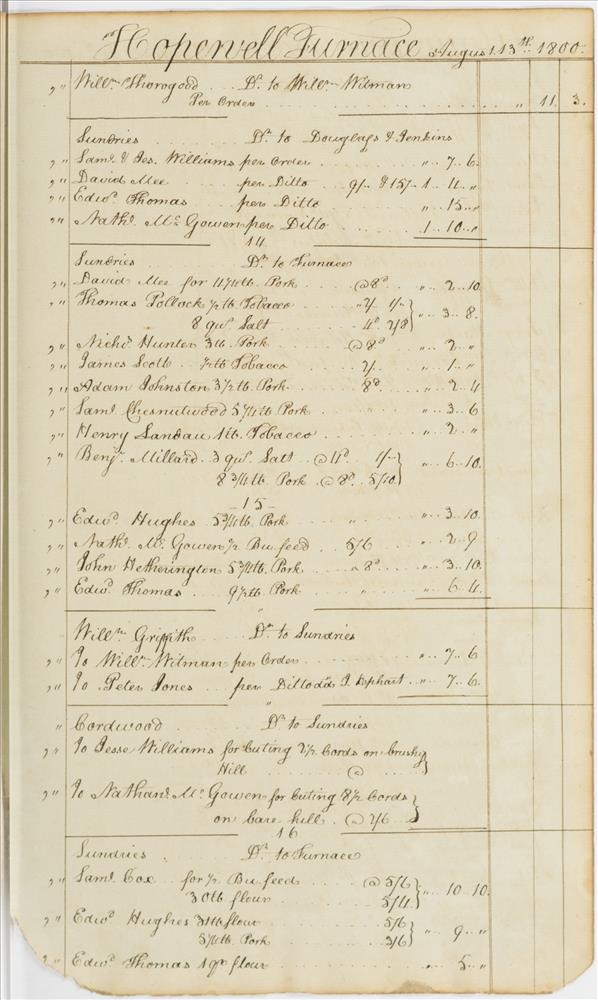 Hopewell Furnace August 13th 1800.
,, Willm Thorogood . . . Dr. to Willm Witman
Per Order . . . . " 11 3.
Sundries . . . Dr. to Douglass & Jenkins
,, Saml & Jes. Williams per Order . . . " .. 7 .. 6.
,, David Mee . . . per Ditto . . 9/- & 15/- 1 .. 4 .. "
,, Edwd Thomas . . . per Ditto . . . " .. 15 .. "
,, Nathl. Mc Gowen per Ditto . . . 1 .. 10 .. "
14
Sundries . . . Dr. to Furnace
,, David Mee for 4 1/4 lb. Pork . . . @ 8d . " .. 2 .. 10.
,, Thomas Pollock 1/2 lb Tobacco . . . " 2/ 1/- } " .. 3 .. 8.
8 qts Salt . . . 4d. 2/8
,, Nichs Hunter 3 lb. Pork . . . @ 8d . " .. 2 .. "
,, James Scott . . 1/2 lb Tobacco . . . 2/. . " .. 1 .. "
,, Adam Johnston 3 1/2 lb. Pork . . . 8d . " .. 2 .. 4
,, Saml. Chesnutwood 5 1/4 lb. Pork . . . " . " .. 3 .. 6
,, Henry Landau 1 lb. Tobacco . . . " .. 2 .. "
,, Benjn. Millard . 3 qts Salt . @ 4d . 1/- } " .. 6 .. 10.
8 3/4 lb. Pork . @ 8d . 5/10
15
,, Edwd Hughes 5 3/4 lb. Pork . . . " . " .. 3 .. 10.
,, Nathl. Mc. Gowen 1/2 Bu. feed . . 5/6 . " .. 2 .. 9
,, John Hetherington 5 3/4 lb. Pork . . " 8d . " .. 3 .. 10.
,, Edwd Thomas . . . 9 1/2 lb. Pork . . . " . " .. 6 .. 4.
"
Willm Griffith . . . Dr. to Sundries
,, To Willm. Witman per Order . . . " .. 7 .. 6
,, To Peter Jones . . per Ditto dd J. Kephart . . " .. 7 .. 6.
"
" Cordwood . . . Dr. to Sundries
,, To Jesse Williams for Cuting 2 1/2 Cords on brushy }
Hill . . . @ . . .
,, To Nathanl. Mc. Gowen for Cuting 8 1/2 Cords }
on bare hill . @ 2/6 . .
16
Sundries . . . Dr. to Furnace
,, Saml. Cox . . for 1/2 Bu feed . . . @ 5/6 } " .. 10 .. 10.
30 lb flour . . . 5/4
,, Edwd Hughes 31 lb flour . . . 5/6 } " .. 9 .. "
5 1/4 lb. Pork . . . 3/6
,, Edwd Thomas 1 qr flour . . . " .. 5 .. "